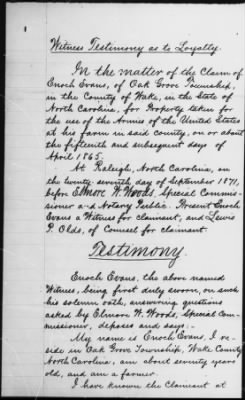 Witness Testimony as to Loyalty.
In the matter of the Claim of
Enoch Evans, of Oak Grove Township,
in the County of Wake, in the State of
North Carolina, for Property taken for
the use of the Armies of the United States
at his farm in said county, on or about
the fifteenth and subsequent days of
April 1865.
At Raleigh, North Carolina, on
the twenty-seventh day of September 1871,
before Elmore W. Woods, Special Commis-
sioner and Notary Public. Present Enoch
Evans a Witness for claimant, and Lewis
P. Olds, of Counsel for claimant
Testimony.
Enoch Evans, the above named
Witness, being first duly sworn, on such
his solemn oath, answering questions
asked by Elmore W. Woods, Special Com-
missioner, deposes and says:-
My name is Enoch Evans, I re-
side in Oak Grove Township, Wake County
North Carolina, am about seventy years
old, and am a farmer.
I have known the Claimant at